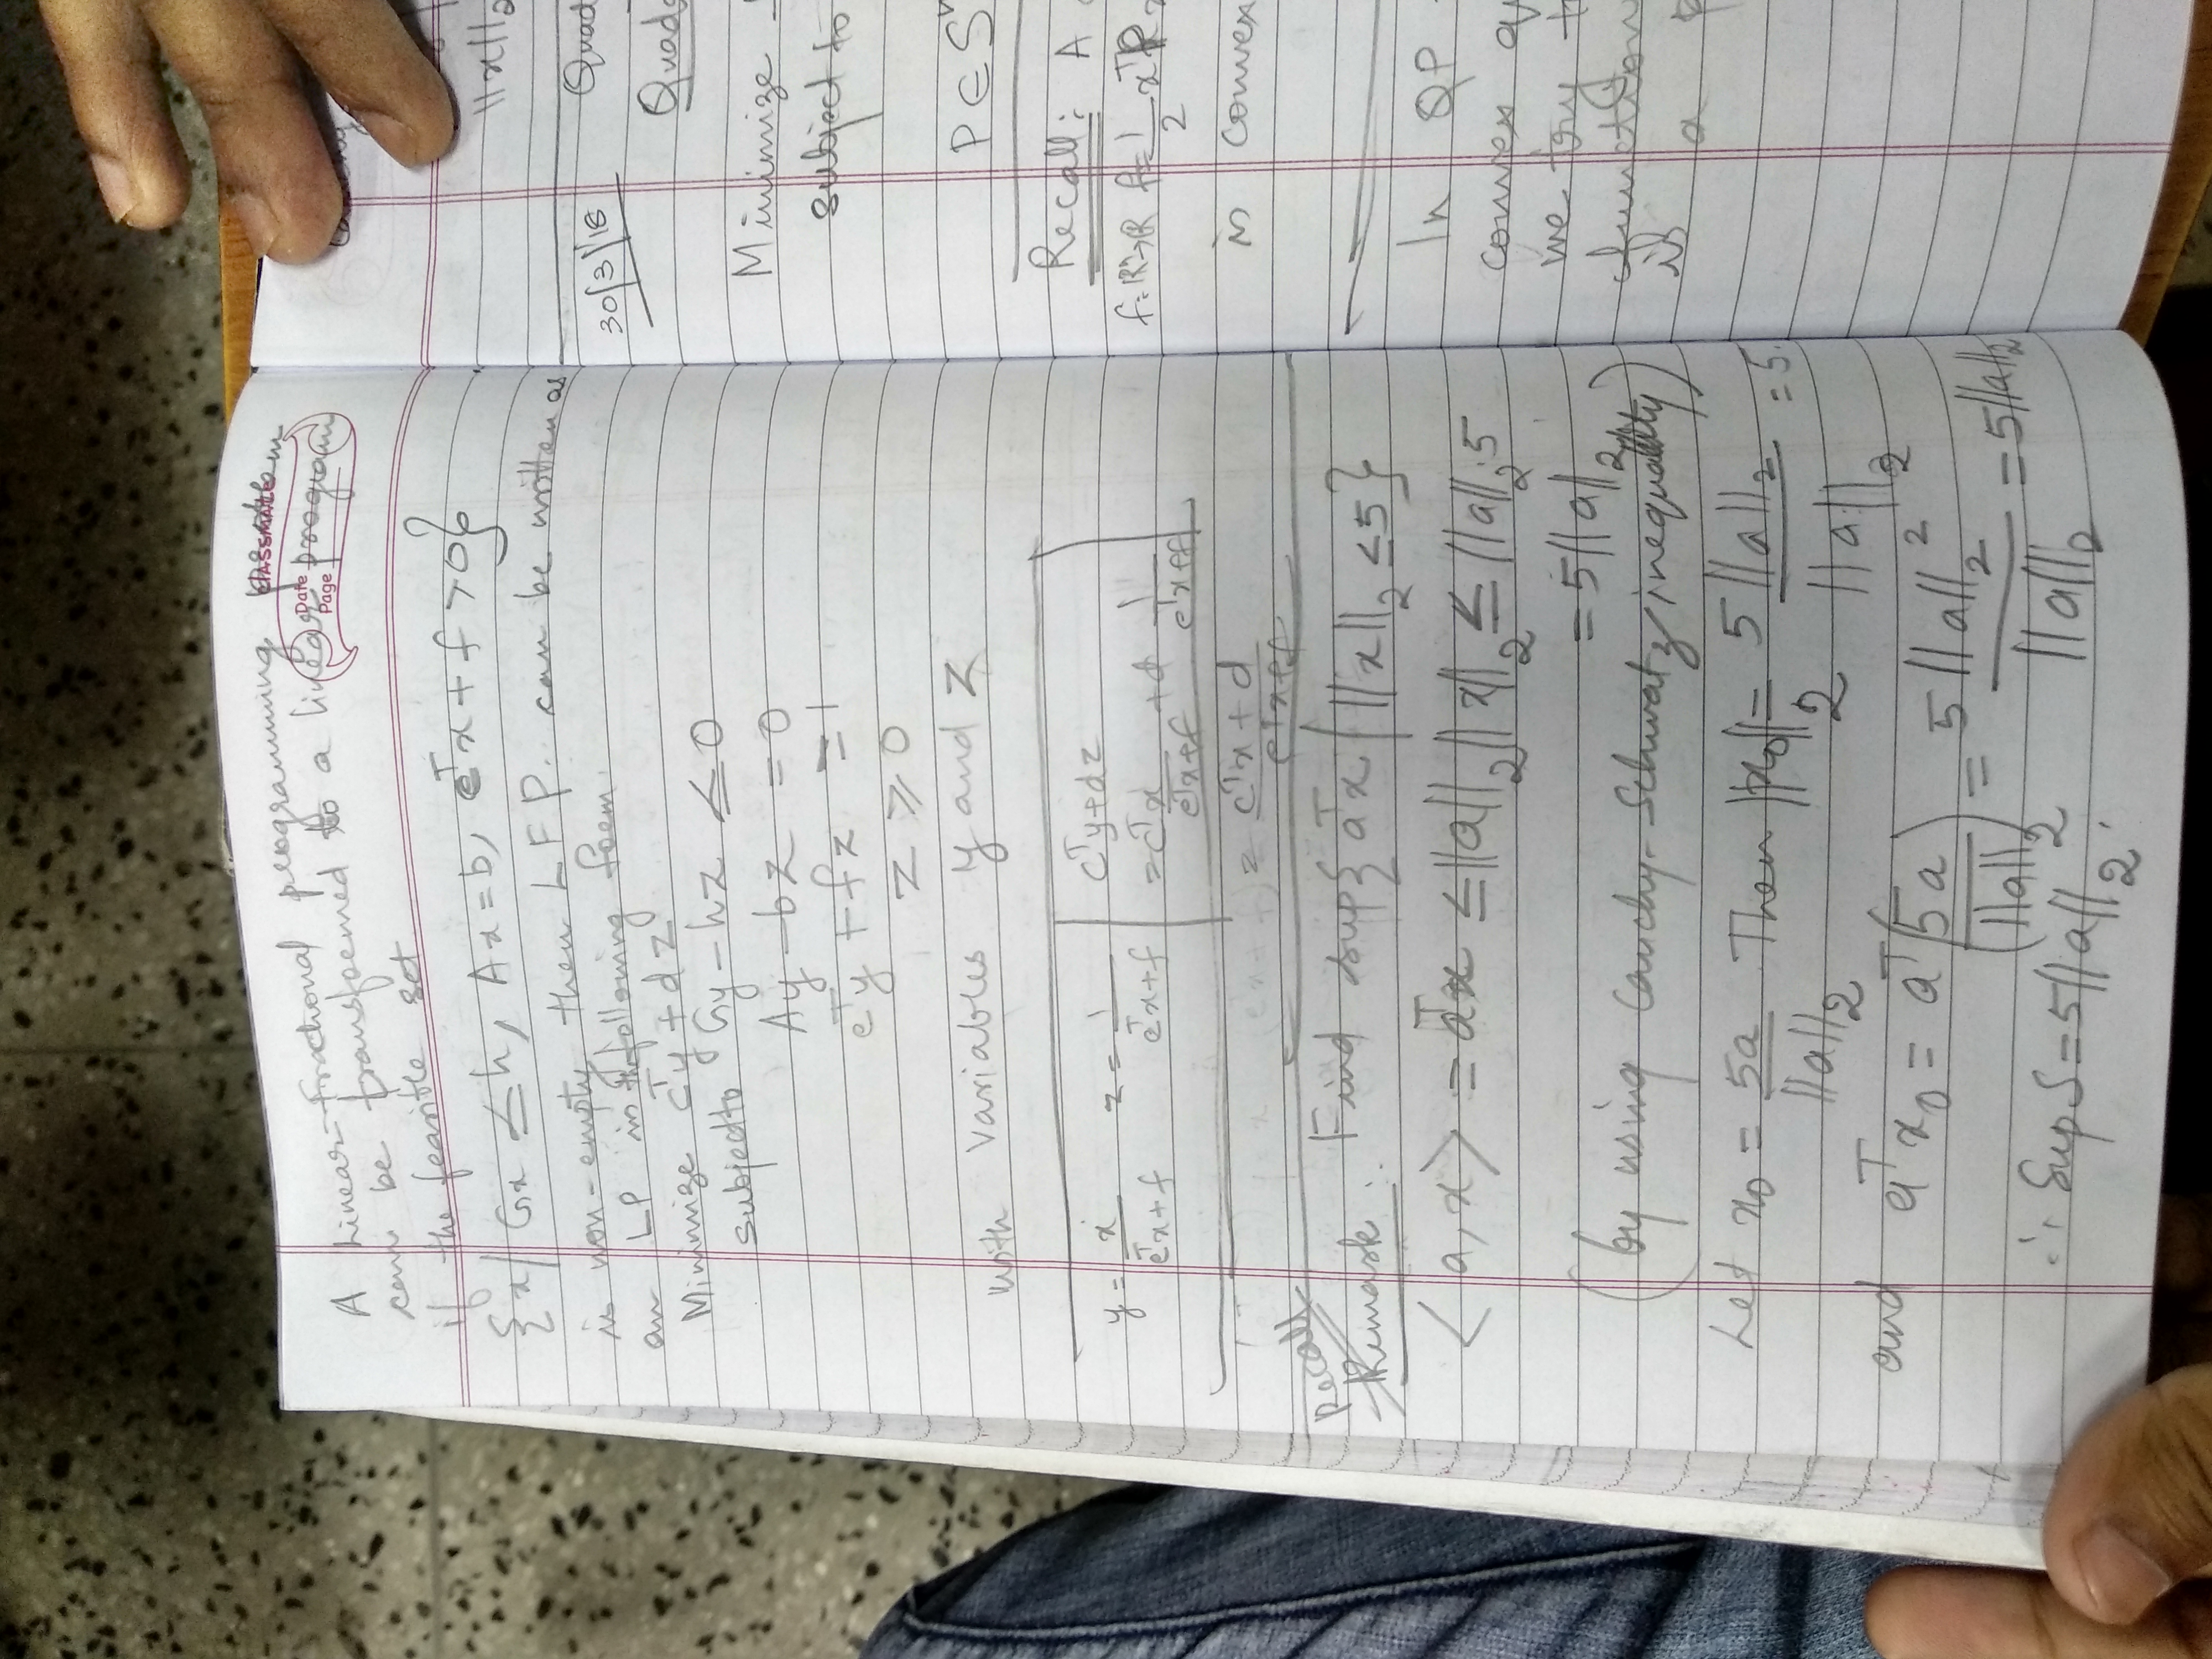 classmate
Date
Page
A Linear-fractional programming problem
can be transformed to a linear program
if the feasible set
{x | Gx ≤ h, Ax = b, eᵀx + f > 0}
is non-empty then LFP. can be written as
an LP in the following form.
Minimize cᵀy + dz
subject to Gy - hz ≤ 0
Ay - bz = 0
eᵀy + fz = 1
z ≥ 0
with variables y and z
y = x / (eᵀx + f) z = 1 / (eᵀx + f)
cᵀy + dz
= cᵀx / (eᵀx + f) + d 1 / (eᵀx + f)
= (cᵀx + d) / (eᵀx + f)
Recall
Remark : Find sup{aᵀx | ||x||₂ ≤ 5}
⟨a, x⟩ = aᵀx ≤ ||a||₂ ||x||₂ ≤ ||a||₂ . 5
= 5||a||₂
(by using Cauchy-Schwatz inequality)
Let x₀ = 5a / ||a||₂ Then ||x₀||₂ = 5||a||₂ / ||a||₂ = 5.
and aᵀx₀ = aᵀ(5a / ||a||₂) = 5||a||₂² / ||a||₂ = 5||a||₂
∴ Sup S = 5||a||₂ .
||x||₂
30/3/18
Quad
Quad
Minimize
subject to
P ∈ Sⁿ
Recall: A
f: Rⁿ → R f = 1/2 xᵀP
is convex
In QP
convex
we try
function
is a